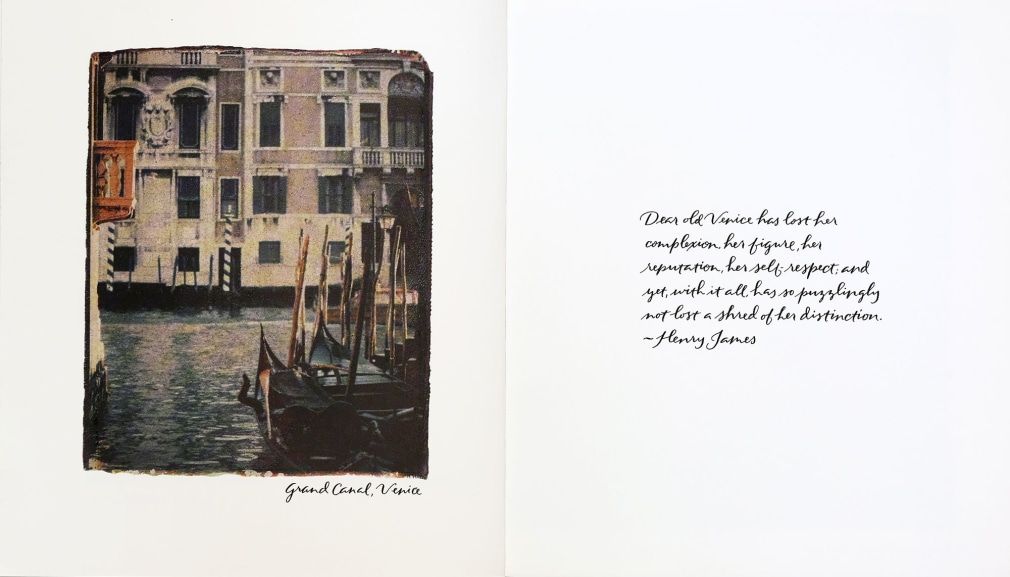 Grand Canal, Venice
Dear old Venice has lost her
complexion, her figure, her
reputation, her self-respect; and
yet, with it all, has so puzzlingly
not lost a shred of her distinction.
~ Henry James